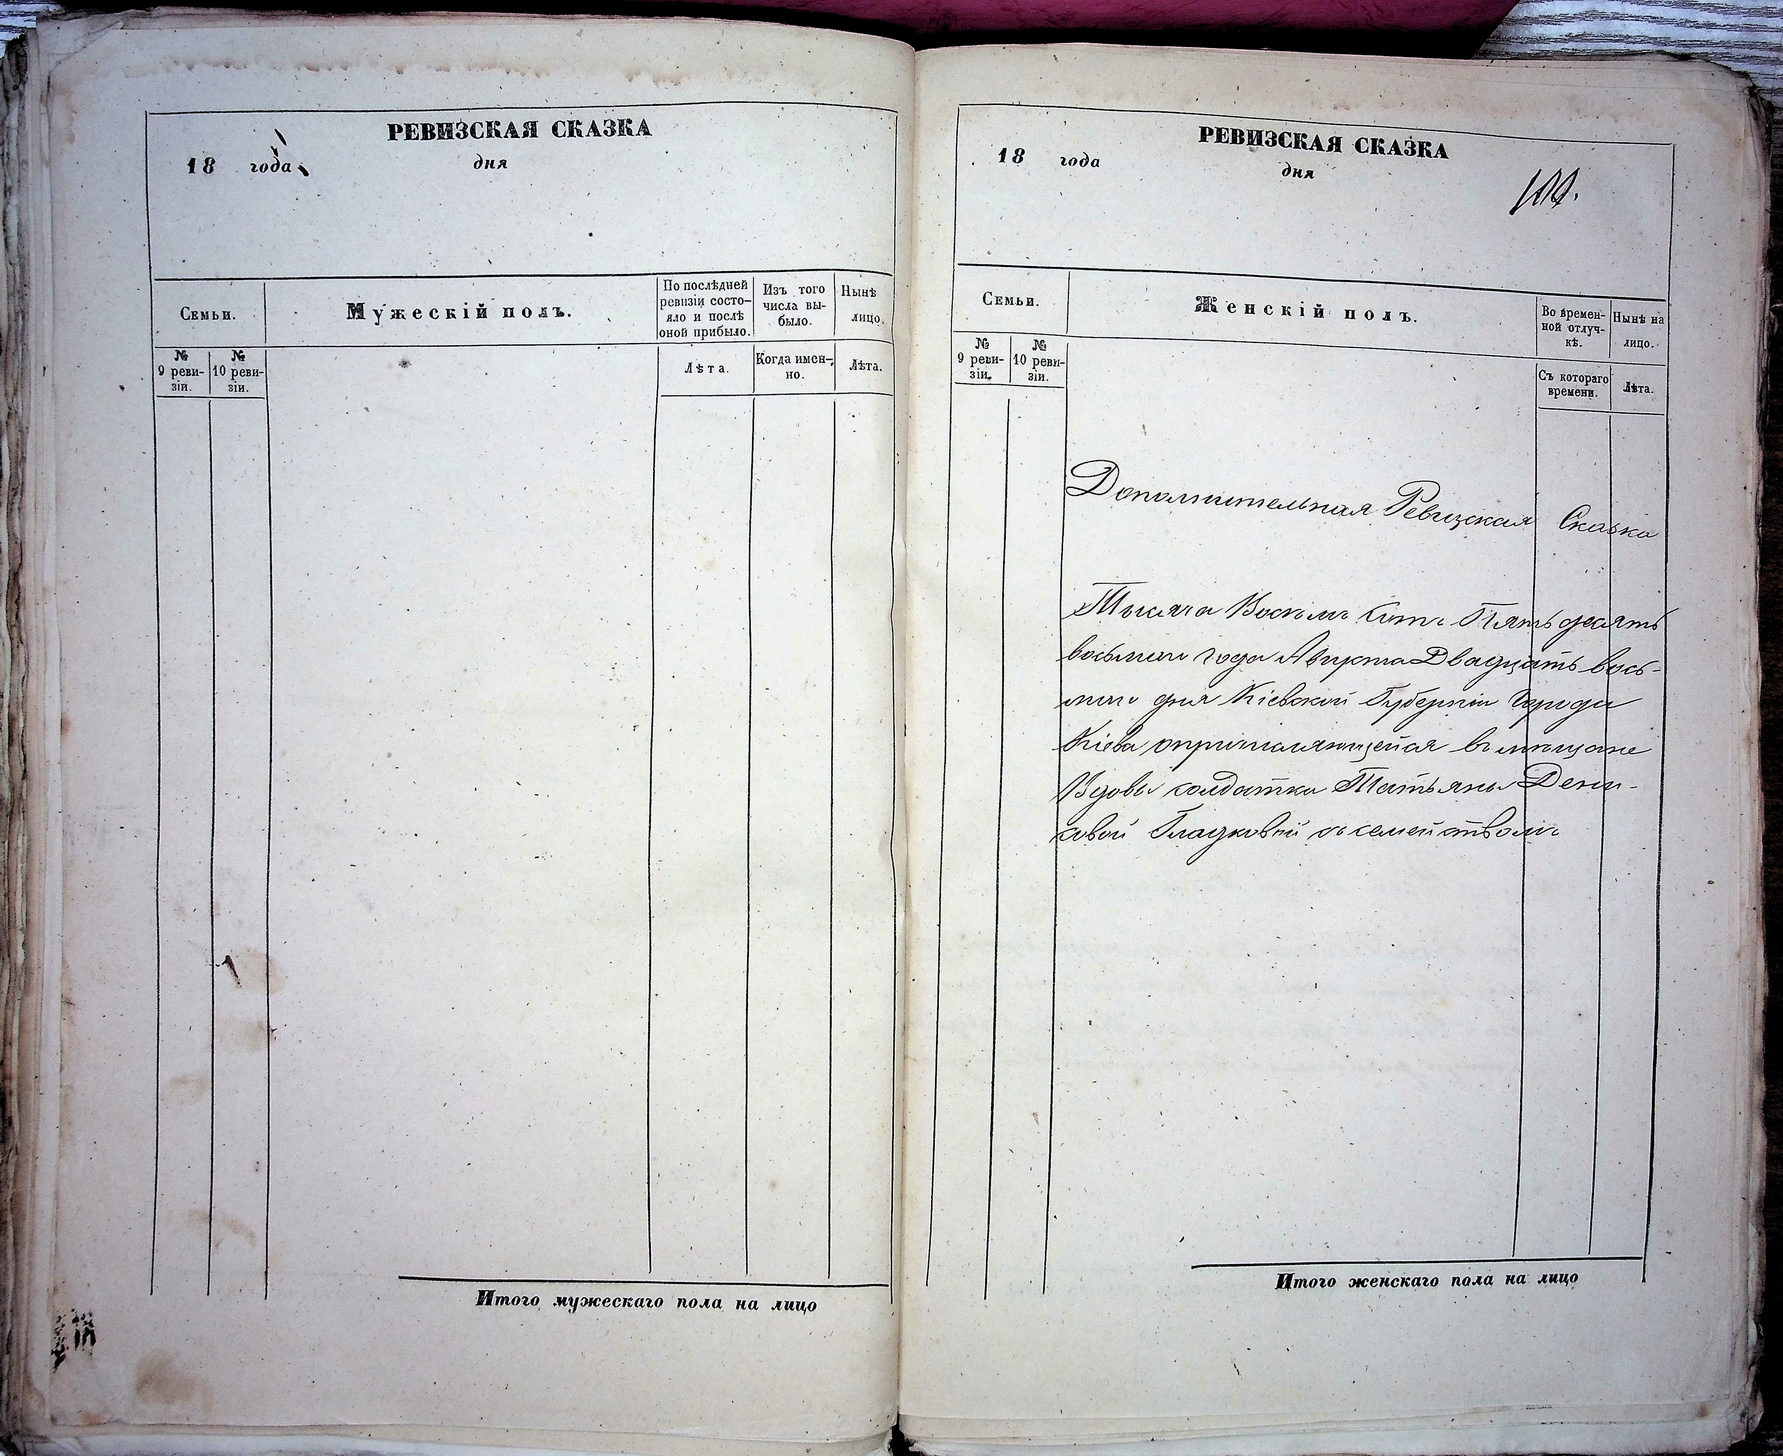 РЕВИЗСКАЯ СКАЗКА
18 года дня
Семьи.
Мужескій полъ.
По послѣдней ревизіи состо-
яло и послѣ оной прибыло.
Изъ того числа вы-
было.
Нынѣ лицо.
№ 9 реви-
зіи.
№ 10 реви-
зіи.
Лѣта.
Когда имен-
но.
Лѣта.
Итого мужескаго пола на лицо
РЕВИЗСКАЯ СКАЗКА
18 года дня
Семьи.
Женскій полъ.
Во времен-
ной отлуч-
кѣ.
Нынѣ на лицо.
№ 9 реви-
зіи.
№ 10 реви-
зіи.
Съ котораго времени.
Лѣта.
Дополнительная Ревизская Сказка
Тысяча Восемь Сотъ Пятьдесятъ
восьмаго года Августа Двадцать вось-
маго дня Кіевской Губерніи Города
Кіева о причисляющейся въ мѣщане
Вдовы солдатки Татьяны Дени-
совой Гладковой съ семействомъ
Итого женскаго пола на лицо